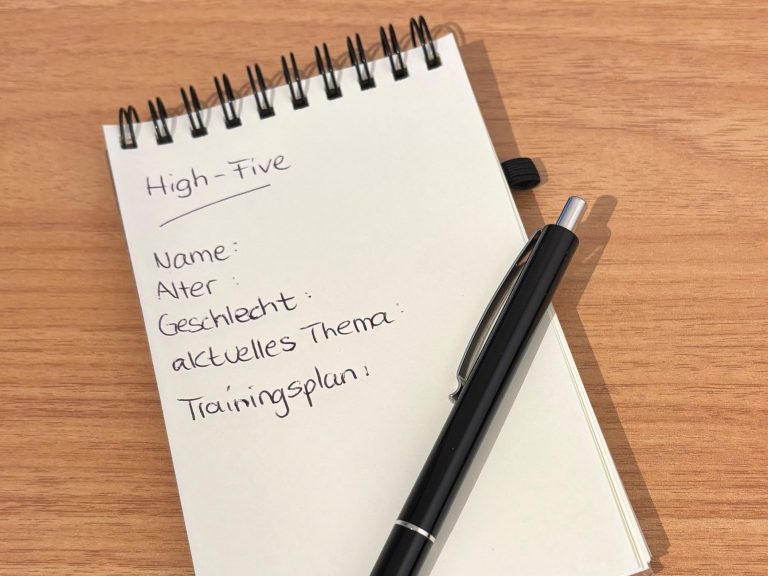 High-Five
Name:
Alter :
Geschlecht:
aktuelles Thema:
Trainingsplan: